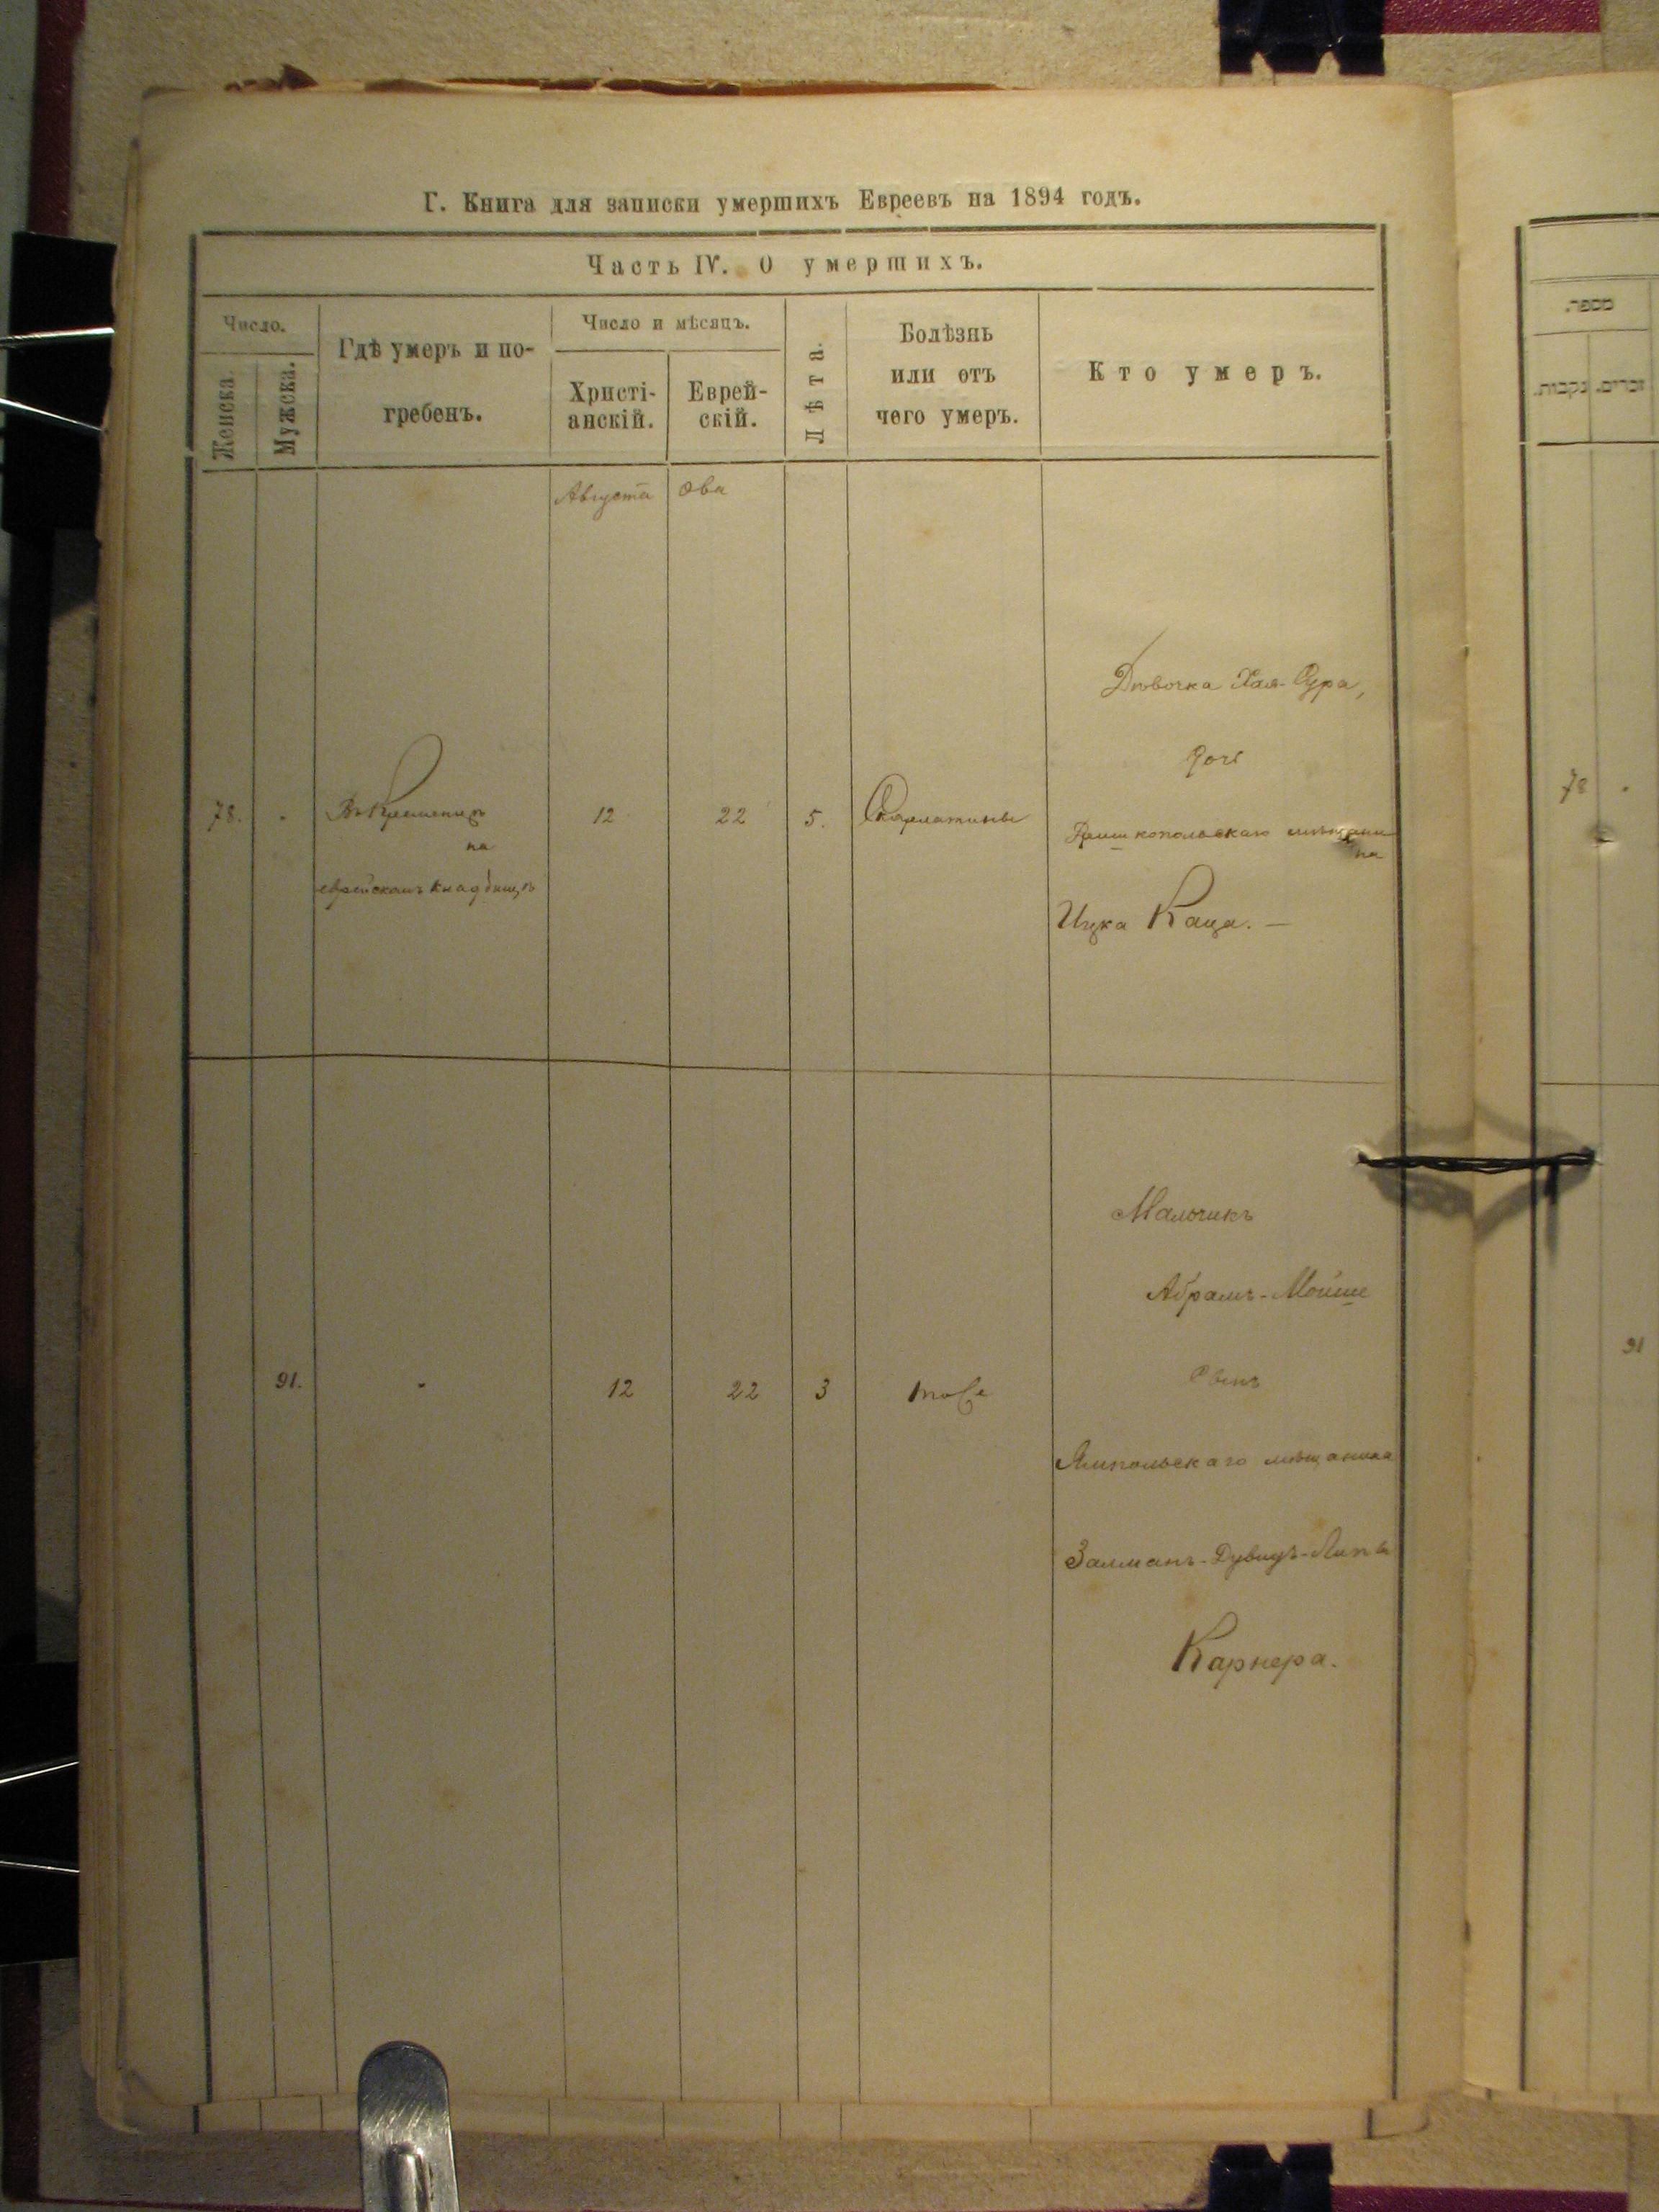 Г. Книга для записки умершихъ Евреевъ на 1894 годъ.
Часть IV. О умершихъ.
Число.
Женска.
Мужска.
Гдѣ умеръ и по-
гребенъ.
Число и мѣсяцъ.
Христі-
анскій.
Еврей-
скій.
Лѣта.
Болѣзнь
или отъ
чего умеръ.
Кто умеръ.
Августа
Ова
78.
Въ Кременцѣ
на
еврейскомъ кладбищѣ
12
22
5.
Скарлатины
Дѣвочка Хая-Сура,
дочь
мѣщани
на
Ицка Каца. —
91.
12
22
3
тоже
Мальчикъ
Абрамъ-Мойше
сынъ
Ямпольскаго мѣщанина
Залманъ-Дувидъ-Липы
Карнера.
מספר.
זכרים.
נקבות.
78
91